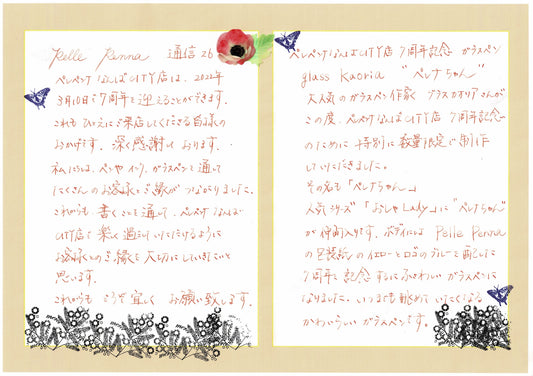 Pelle Penna 通信26
ペレペンナなんばCITY店は、2022年
3月10日で7周年を迎えることができます。
これも ひとえにご来店してくださる皆様の
おかげです。深く感謝しております。
私たちは、ペンやインク、ガラスペンを通して
たくさんのお客様とご縁がつながりました。
これからも 書くことを通して、ペレペンナなんば
CITY店で楽しく過ごしていただけるように
お客様とのご縁を大切にしていきたいと
思います。
これからも どうぞ宜しく お願い致します。
ペレペンナなんばCITY店 7周年記念 ガラスペン
glass Kaoria “ペレナちゃん”
大人気のガラスペン作家 グラスカオリアさんが
この度、ペレペンナなんばCITY店 7周年記念
のために 特別に数量限定で制作
していただきました。
その名も「ペレナちゃん」
人気シリーズ「おしゃLady」に“ペレナちゃん”
が仲間入りです。ボディには Pelle Penna
の包装紙のイエローとロゴのブルーを配して
7周年を記念するにふさわしい ガラスペンに
なりました。いつまでも眺めていたくなる
かわいらしい ガラスペンです。